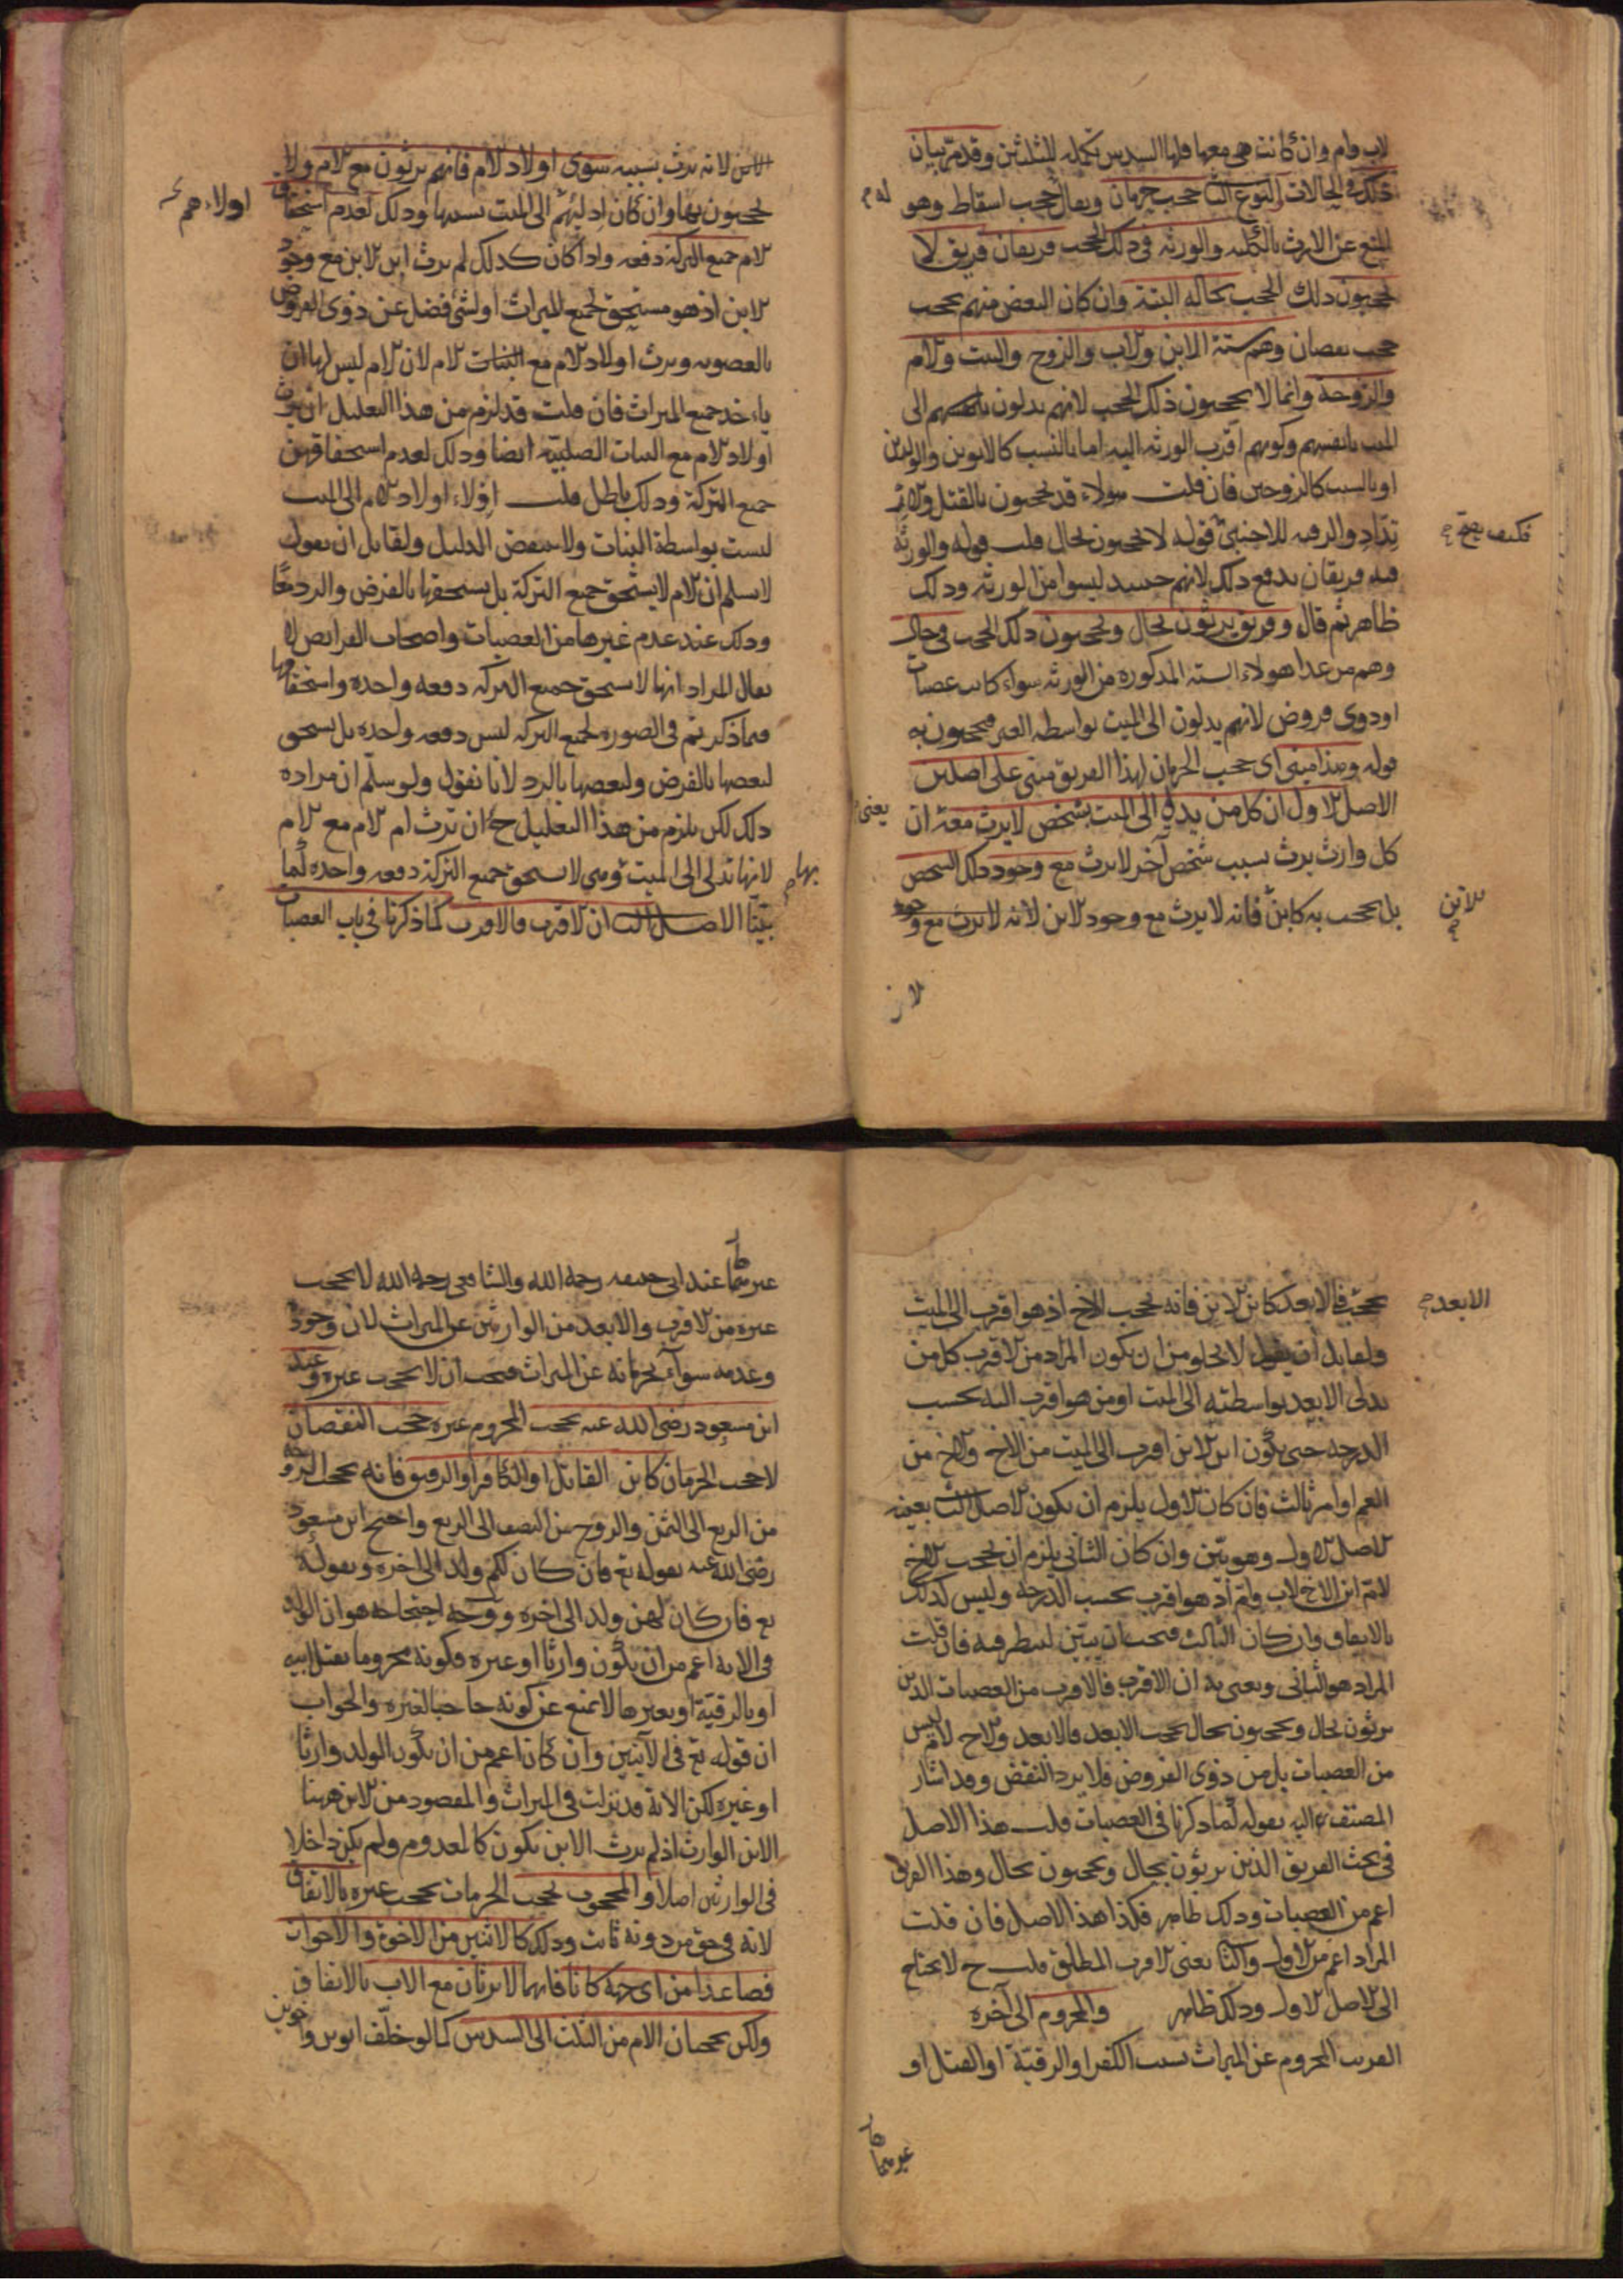 لاب وام وان كانت هى معها فلها السدس تكملة للثلثين وقد مر بيان
ذلك فى الحالات النوع الثا حجب حرمان ويقال له حجب اسقاط وهو
المنع عن الارث بالكلية والورثة فى ذلك الحجب فريقان فريق لا
يحجبون ذلك الحجب بحاله البتة وان كان البعض منهم يحجب
حجب نقصان وهم ستة الابن والاب والزوج والبنت والام
والزوجة وانما لا يحجبون ذلك الحجب لانهم يدلون الى
الميت بانفسهم وكونهم اقرب الورثة اليه اما بالنسب كالابوين والولدين
او بالسبب كالزوجين فان قلت هولاء قد يحجبون بالقتل والار
تداد والرقية للاجنبى قوله لا يحجبون بحال قلت قوله والورثة
فكيف يصح
فيه فريقان يدفع ذلك لانهم حينيذ ليسوا من الورثة وذلك
ظاهر ثم قال وفريق يرثون بحال ويحجبون ذلك الحجب فى حال
وهم من عدا هولاء الستة المذكورة من الورثة سواء كانت عصبات
او ذوى فروض لانهم يدلون الى الميت بواسطة الغير فيحجبون به
قوله وهذا مبنى اى حجب الحرمان لهذا الفريق مبنى على اصلين
الاصل الاول ان كل من يدلى الى الميت بشخص لا يرث معه ان يعنى
كل وارث يرث بسبب شخص آخر لا يرث مع وجود ذلك الشخص
بل يحجب به كابن فانه لا يرث مع وجود الابن لانه لا يرث مع وجود
الابن
لابن
الابن لانه يرث بسببه سوى اولاد الام فانهم يرثون مع الام ولا
يحجبون بها وان كان ادليهم الى الميت بسببها وذلك لعدم استحقاق
اولاءهم
الام جميع التركة دفعة واذا كان كذلك لم يرث ابن الابن مع وجود
الابن اذ هو مستحق لجميع الميراث او لشئ فضل عن ذوى الفروض
بالعصوبة ويرث اولاد الام مع الام لان الام ليس لها ان
ياخذ جميع الميراث فان قلت قد لزم من هذا التعليل ان يرث
اولاد الام مع البنات الصلبية ايضا وذلك لعدم استحقاقهن
جميع التركة وذلك باطل قلت اولاء اولاد الام الى الميت
ليست بواسطة البنات ولا ينقض الدليل ولقايل ان يقول
لا نسلم ان الام لا يستحق جميع التركة بل يستحقها بالفرض والرد معًا
وذلك عند عدم غيرها من العصبات واصحاب الفرايض لا
يقال المراد انها لا يستحق جميع التركة دفعة واحدة واستحقاقها
فيما ذكرتم فى الصورة لجميع التركة ليس دفعة واحدة بل يستحق
لبعضها بالفرض ولبعضها بالرد لانا نقول ولو سلم ان مراده
ذلك لكن يلزم من هذا التعليل ح ان ترث ام الام مع الام
لانها تدلى الى الميت وهى لا يستحق جميع التركة دفعة واحدة لما
بها
بيّنا الاصل الثا ان الاقرب فالاقرب كما ذكرنا فى باب العصبات
يحجب فالابعد كابن الابن فانه يحجب الاخ اذ هو اقرب الى الميت
الابعد
ولقايل ان يقول لا يخلو من ان يكون المراد من الاقرب كل من
يدلى الابعد بواسطته الى الميت او من هو اقرب اليه بحسب
الدرجة حتى يكون ابن الابن اقرب الى الميت من الاخ والاخ من
العم او امر ثالث فان كان الاول يلزم ان يكون الاصل الثا بعينه
الاصل الاول وهو بيّن وان كان الثانى يلزم ان يحجب الاخ
لام ابن الاخ لاب وام اذ هو اقرب بحسب الدرجة وليس كذلك
بالاتفاق وان كان الثالث فيجب ان يبيّن لينظر فيه فان قلت
المراد هو الثانى ويعنى به ان الاقرب فالاقرب من العصبات الذين
يرثون بحال ويحجبون بحال يحجب الابعد فالابعد والاخ لام ليس
من العصبات بل من ذوى الفروض فلا يرد النقض وقد اشار
المصنف اليه بقوله كما ذكرنا فى العصبات قلت هذا الاصل
فى بحث الفريق الذين يرثون بحال ويحجبون بحال وهذا الفريق
اعم من العصبات وذلك ظاهر فكذا هذا الاصل فان قلت
المراد اعم من الاول والثا يعنى الاقرب المطلق قلت ح لا يحتاج
الى الاصل الاول وذلك ظاهر والمحروم الى آخره
القريب المحروم عن الميراث بسبب الكفر او الرقيّة او القتل او
غيرهما
غيرهما عند ابى حنيفة رحمه الله والشافعى رحمه الله لا يحجب
غيره من الاقرب والابعد من الوارثين عن الميراث لان وجوده
وعدمه سواء لحرمانه عن الميراث فيجب ان لا يحجب غيره وعند
ابن مسعود رضى الله عنه يحجب المحروم غيره حجب النقصان
لا حجب الحرمان كابن القاتل او الكافر او الرقيق فانه يحجب الزوجة
من الربع الى الثمن والزوج من النصف الى الربع واحتج ابن مسعود
رضى الله عنه بقوله تع فان كان لكم ولد الى اخره وبقوله
تع فان كان لهن ولد الى اخره ووجه احتجاجه هو ان الولد
فى الاية اعم من ان يكون وارثا او غيره فكونه محروما بقتل ابيه
او بالرقيّة او بغيرها لا يمنع عن كونه حاجبا لغيره والجواب
ان قوله تع فى الآيتين وان كان اعم من ان يكون الولد وارثا
او غيره لكن الاية قد نزلت فى الميراث والمقصود من الابن ههنا
الابن الوارث اذ لم يرث الابن يكون كالمعدوم ولم يكن داخلا
فى الوارثين اصلا والمحجوب بحجب الحرمان يحجب غيره بالاتفاق
لانه فى حق من دونه ثابت وذلك كالاثنين من الاخوة والاخوات
فصاعدا من اى جهة كانا فانهما لا يرثان مع الاب بالاتفاق
ولكن يحجبان الام من الثلث الى السدس كما لو خلّف ابوين واخوين